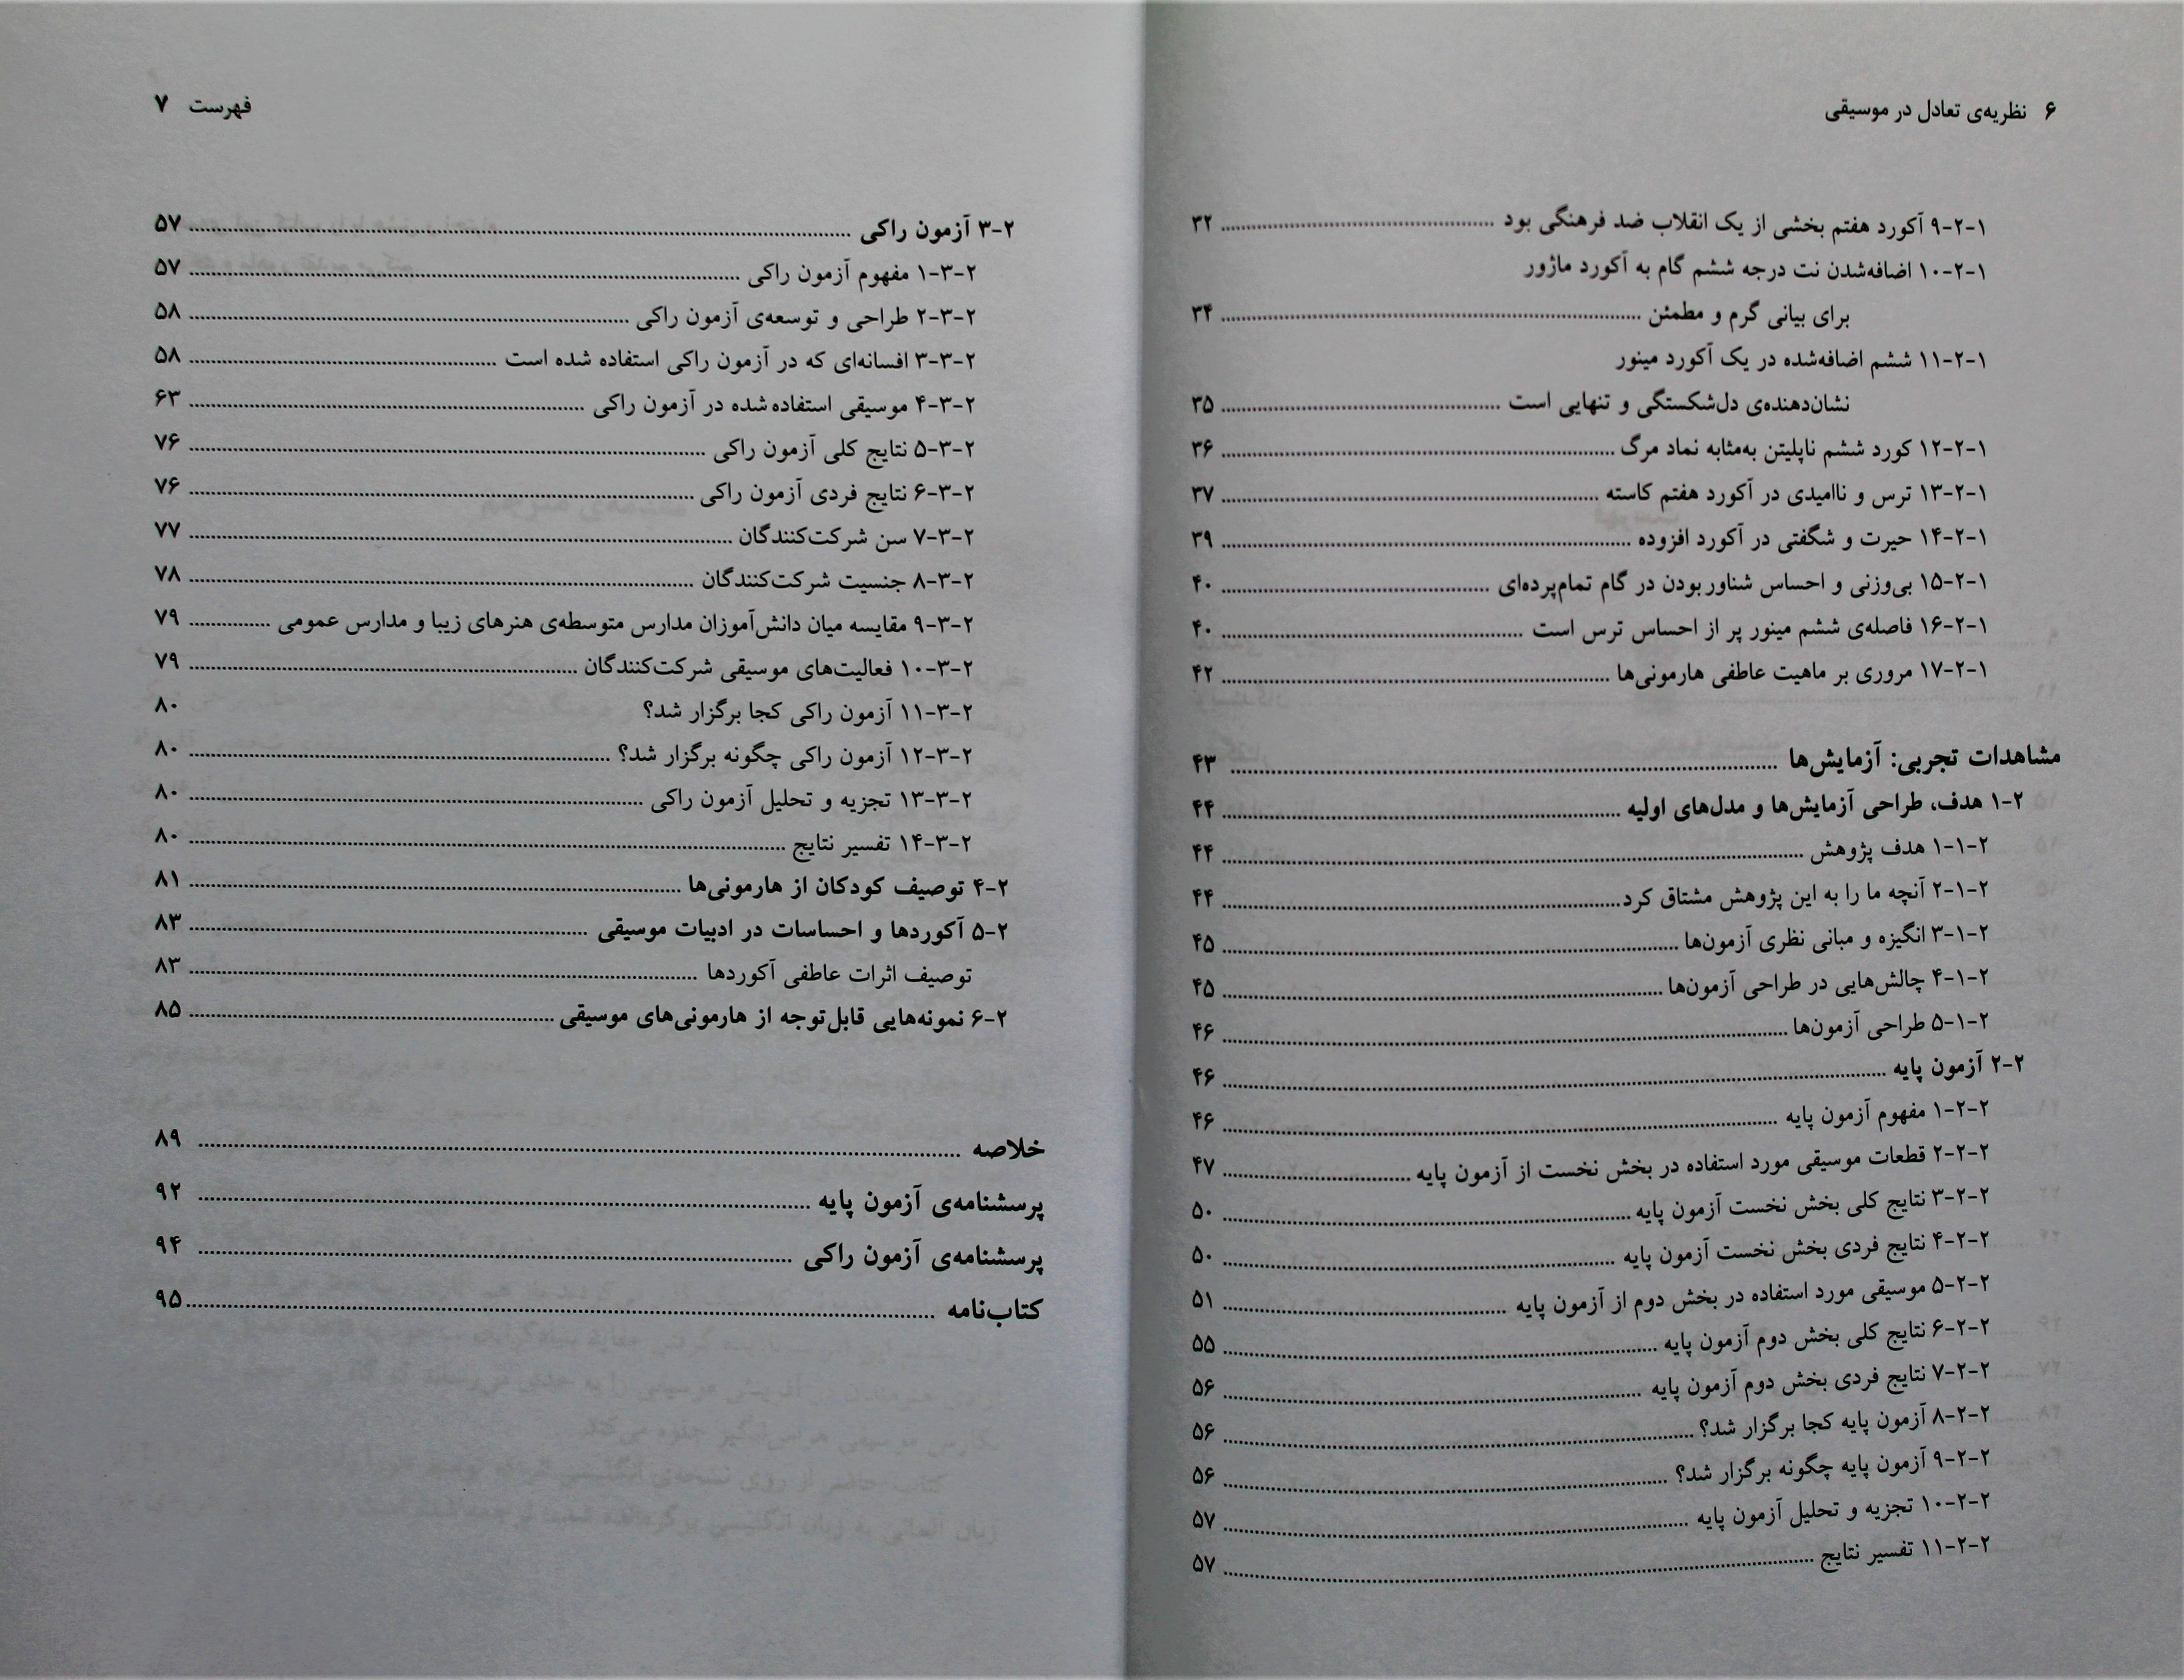 ۶ نظریه‌ی تعادل در موسیقی
۱-۲-۹ آکورد هفتم بخشی از یک انقلاب ضد فرهنگی بود ........ ۳۲
۱-۲-۱۰ اضافه‌شدن نت درجه ششم گام به آکورد ماژور
برای بیانی گرم و مطمئن ........ ۳۴
۱-۲-۱۱ ششم اضافه‌شده در یک آکورد مینور
نشان‌دهنده‌ی دل‌شکستگی و تنهایی است ........ ۳۵
۱-۲-۱۲ کورد ششم ناپلیتن به‌مثابه نماد مرگ ........ ۳۶
۱-۲-۱۳ ترس و ناامیدی در آکورد هفتم کاسته ........ ۳۷
۱-۲-۱۴ حیرت و شگفتی در آکورد افزوده ........ ۳۹
۱-۲-۱۵ بی‌وزنی و احساس شناور بودن در گام تمام‌پرده‌ای ........ ۴۰
۱-۲-۱۶ فاصله‌ی ششم مینور پر از احساس ترس است ........ ۴۰
۱-۲-۱۷ مروری بر ماهیت عاطفی هارمونی‌ها ........ ۴۲
مشاهدات تجربی: آزمایش‌ها ........ ۴۳
۲-۱ هدف، طراحی آزمایش‌ها و مدل‌های اولیه ........ ۴۴
۲-۱-۱ هدف پژوهش ........ ۴۴
۲-۱-۲ آنچه ما را به این پژوهش مشتاق کرد ........ ۴۴
۲-۱-۳ انگیزه و مبانی نظری آزمون‌ها ........ ۴۵
۲-۱-۴ چالش‌هایی در طراحی آزمون‌ها ........ ۴۵
۲-۱-۵ طراحی آزمون‌ها ........ ۴۶
۲-۲ آزمون پایه ........ ۴۶
۲-۲-۱ مفهوم آزمون پایه ........ ۴۶
۲-۲-۲ قطعات موسیقی مورد استفاده در بخش نخست از آزمون پایه ........ ۴۷
۲-۲-۳ نتایج کلی بخش نخست آزمون پایه ........ ۵۰
۲-۲-۴ نتایج فردی بخش نخست آزمون پایه ........ ۵۰
۲-۲-۵ موسیقی مورد استفاده در بخش دوم از آزمون پایه ........ ۵۱
۲-۲-۶ نتایج کلی بخش دوم آزمون پایه ........ ۵۵
۲-۲-۷ نتایج فردی بخش دوم آزمون پایه ........ ۵۶
۲-۲-۸ آزمون پایه کجا برگزار شد؟ ........ ۵۶
۲-۲-۹ آزمون پایه چگونه برگزار شد؟ ........ ۵۶
۲-۲-۱۰ تجزیه و تحلیل آزمون پایه ........ ۵۷
۲-۲-۱۱ تفسیر نتایج ........ ۵۷
فهرست ۷
۲-۳ آزمون راکی ........ ۵۷
۲-۳-۱ مفهوم آزمون راکی ........ ۵۷
۲-۳-۲ طراحی و توسعه‌ی آزمون راکی ........ ۵۸
۲-۳-۳ افسانه‌ای که در آزمون راکی استفاده شده است ........ ۵۸
۲-۳-۴ موسیقی استفاده شده در آزمون راکی ........ ۶۳
۲-۳-۵ نتایج کلی آزمون راکی ........ ۷۶
۲-۳-۶ نتایج فردی آزمون راکی ........ ۷۶
۲-۳-۷ سن شرکت‌کنندگان ........ ۷۷
۲-۳-۸ جنسیت شرکت‌کنندگان ........ ۷۸
۲-۳-۹ مقایسه میان دانش‌آموزان مدارس متوسطه‌ی هنرهای زیبا و مدارس عمومی ........ ۷۹
۲-۳-۱۰ فعالیت‌های موسیقی شرکت‌کنندگان ........ ۷۹
۲-۳-۱۱ آزمون راکی کجا برگزار شد؟ ۸۰
۲-۳-۱۲ آزمون راکی چگونه برگزار شد؟ ........ ۸۰
۲-۳-۱۳ تجزیه و تحلیل آزمون راکی ........ ۸۰
۲-۳-۱۴ تفسیر نتایج ........ ۸۰
۲-۴ توصیف کودکان از هارمونی‌ها ........ ۸۱
۲-۵ آکوردها و احساسات در ادبیات موسیقی ........ ۸۳
توصیف اثرات عاطفی آکوردها ........ ۸۳
۲-۶ نمونه‌هایی قابل‌توجه از هارمونی‌های موسیقی ........ ۸۵
خلاصه ........ ۸۹
پرسشنامه‌ی آزمون پایه ........ ۹۲
پرسشنامه‌ی آزمون راکی ........ ۹۴
کتاب‌نامه ........ ۹۵